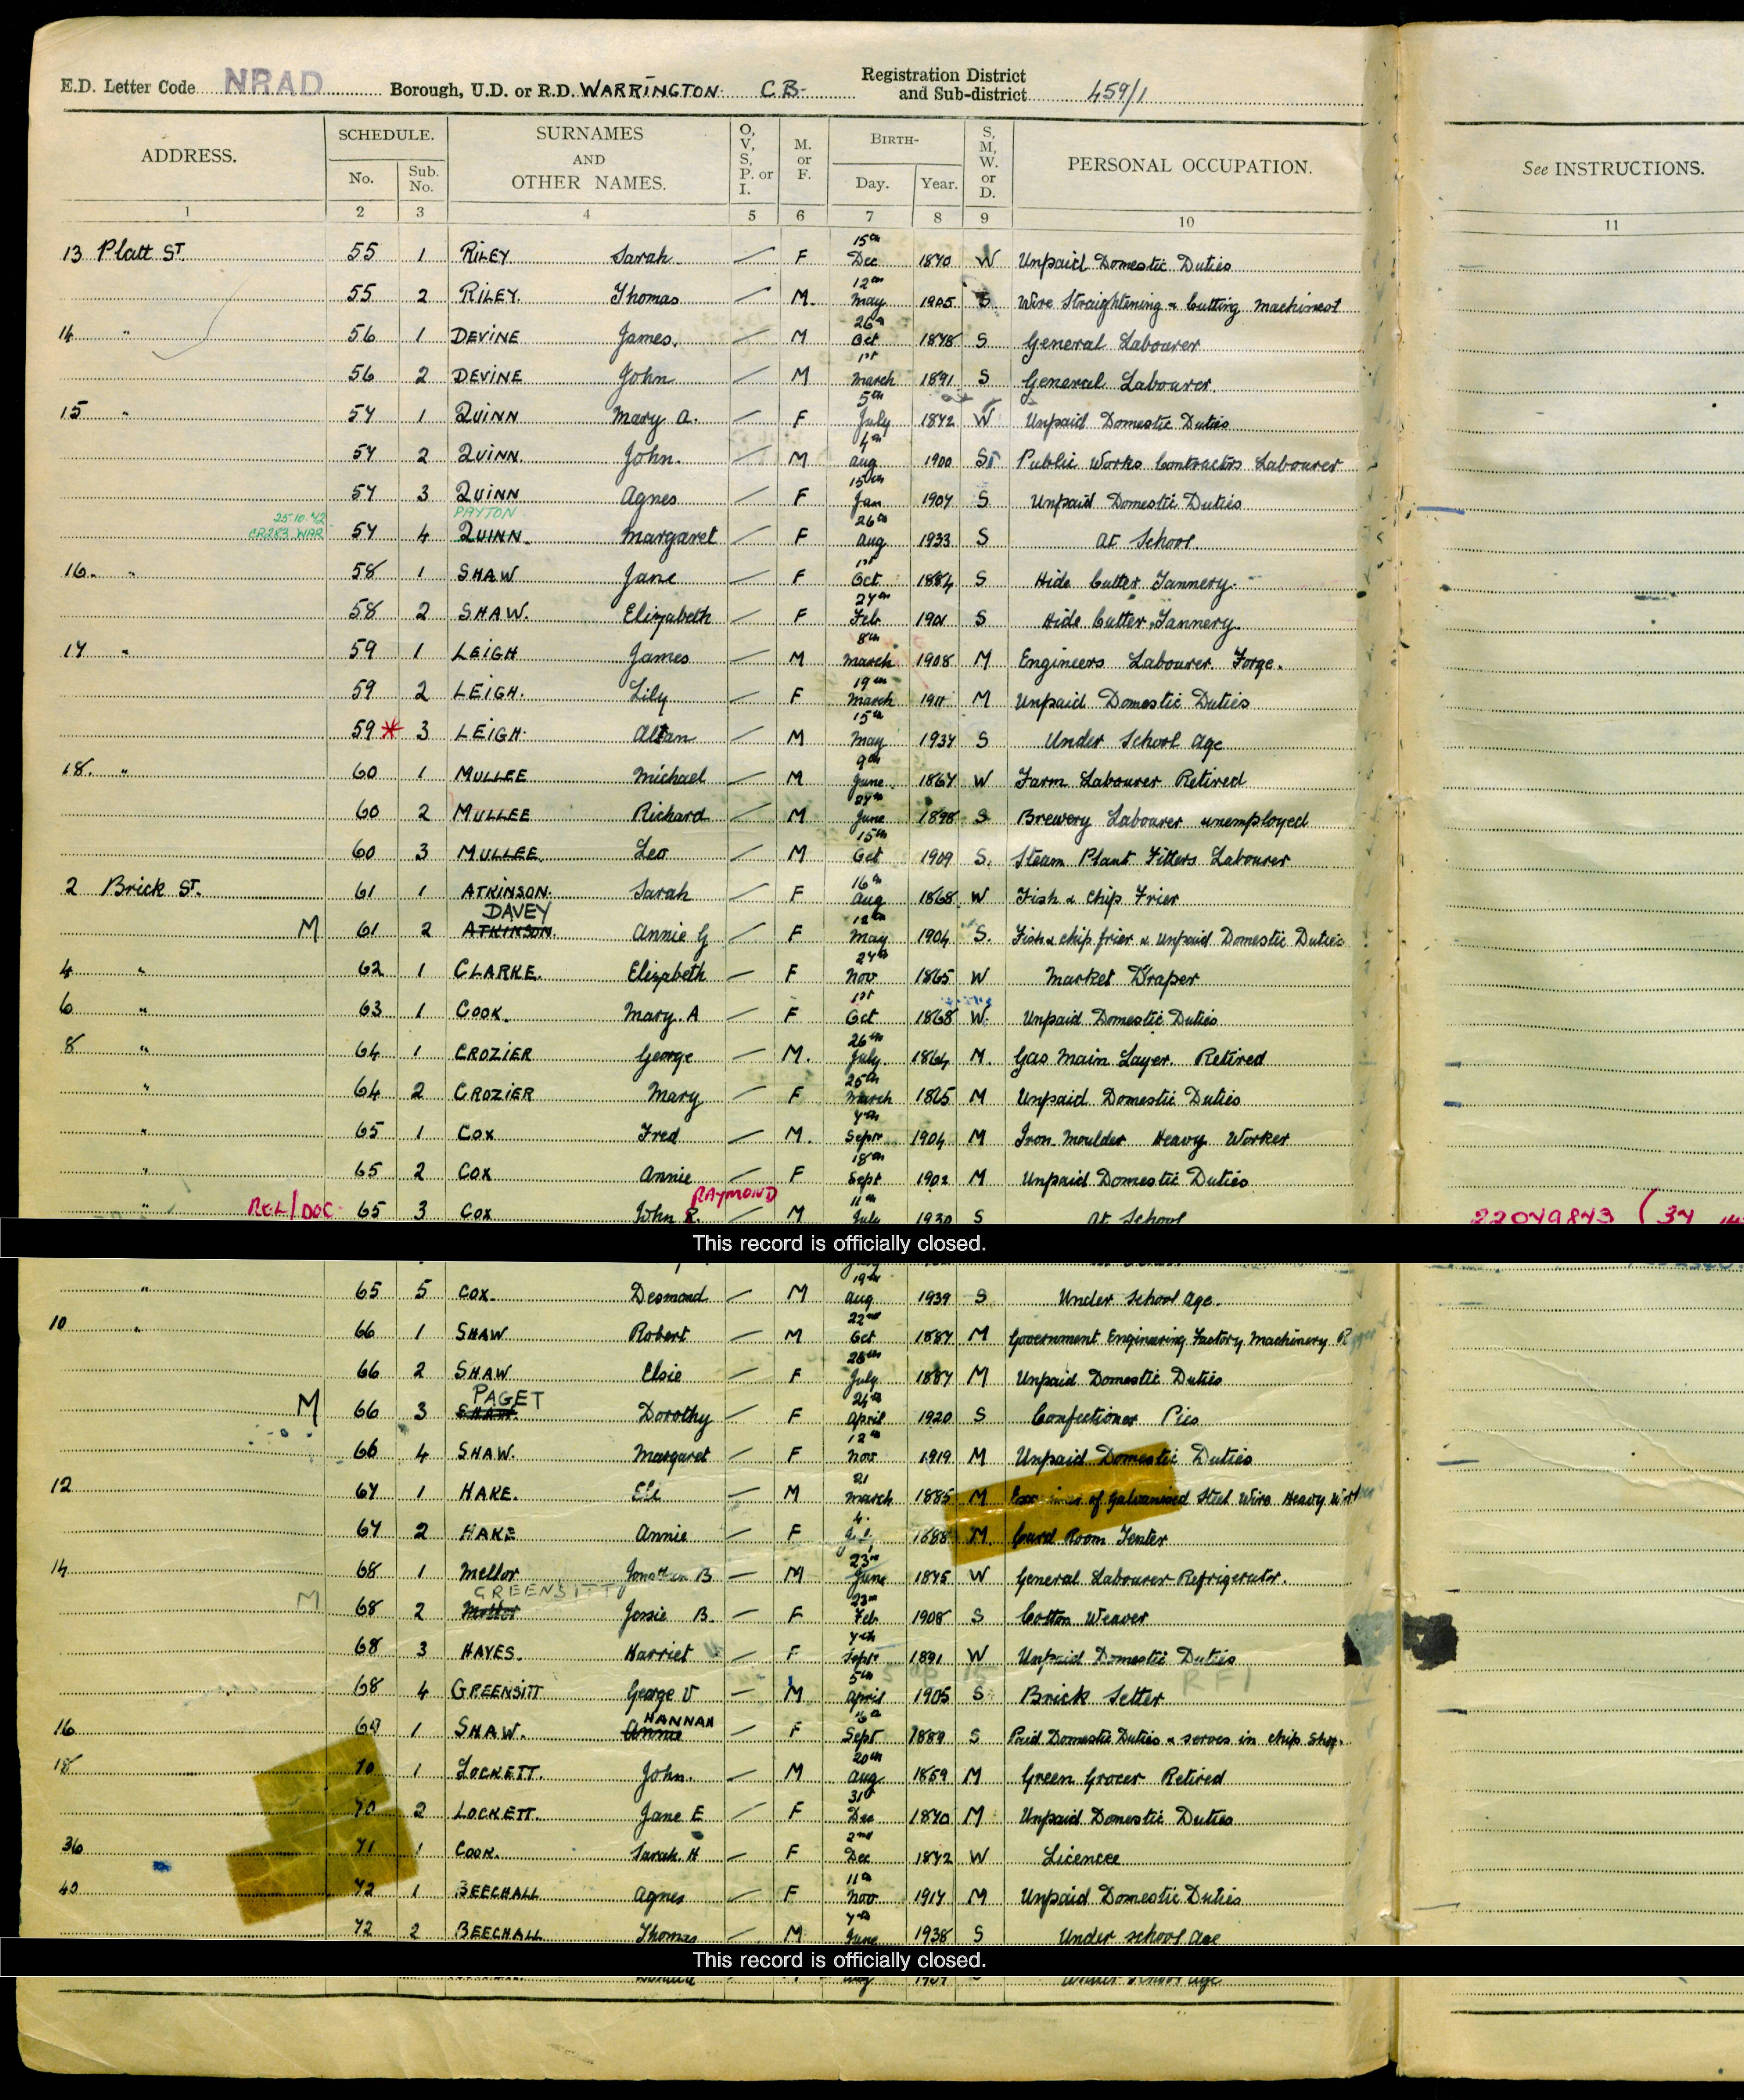 E.D. Letter Code NRAD Borough, U.D. or R.D. WARRINGTON C.B. Registration District and Sub-district 459/1
ADDRESS. SCHEDULE. No. Sub. No. SURNAMES AND OTHER NAMES. O, V, S, P. or I. M. or F. BIRTH- Day. Year. S, M, W. or D. PERSONAL OCCUPATION. See INSTRUCTIONS.
1 2 3 4 5 6 7 8 9 10 11
13 Platt St. 55 1 RILEY Sarah — F 15th Dec 1870 W Unpaid Domestic Duties
55 2 RILEY. Thomas — M. 12th May 1905 S Wire Straightening & Cutting Machinest
14 " 56 1 DEVINE James. — M 26th Oct 1878 S General Labourer
56 2 DEVINE John — M 1st March 1891 S General Labourer
15 " 57 1 QUINN Mary A. — F 5th July 1872 W Unpaid Domestic Duties
57 2 QUINN. John. — M 4th Aug 1900 S Public Works Contractors Labourer
57 3 QUINN Agnes — F 15th Jan 1907 S Unpaid Domestic Duties
25.10.42 PAYTON
CR283 WAR 57 4 QUINN. Margaret — F 26th Aug 1933 S At School.
16. " 58 1 SHAW Jane — F 1st Oct 1884 S Hide Cutter Tannery.
58 2 SHAW. Elizabeth — F 27th Feb 1901 S Hide Cutter Tannery.
17 " 59 1 LEIGH James — M 8th March 1908 M Engineers Labourer Forge.
59 2 LEIGH. Lily — F 19th March 1911 M Unpaid Domestic Duties
59 * 3 LEIGH. Allan — M 15th May 1937 S Under School Age
18. " 60 1 MULLEE Michael — M 9th June 1867 W Farm Labourer Retired
60 2 MULLEE Richard — M 27th June 1898 S Brewery Labourer unemployed
60 3 MULLEE. Leo — M 15th Oct 1909 S. Steam Plant Fitters Labourer
2 Brick St. 61 1 ATKINSON. Sarah — F 16th Aug 1868 W Fish & Chip Frier
DAVEY
M 61 2 ATKINSON. Annie G — F 12th May 1904 S. Fish & chip frier & Unpaid Domestic Duties
4 " 62 1 CLARKE. Elizabeth — F 27th Nov 1865 W Market Draper
6 " 63 1 COOK. Mary. A — F 1st Oct 1868 W. Unpaid Domestic Duties
8 " 64 1 CROZIER George — M. 26th July 1864 M. Gas Main Layer. Retired
" 64 2 CROZIER Mary — F 25th March 1865 M Unpaid Domestic Duties
" 65 1 COX Fred — M. 7th Sept 1904 M Iron Moulder Heavy Worker
" 65 2 COX Annie — F 18th Sept 1902 M Unpaid Domestic Duties
RAYMOND
" REL/DOC 65 3 COX John R. — M 11th July 1930 S At School 22079873 (34
This record is officially closed.
" 65 5 COX. Desmond — M 19th Aug 1939 S Under School Age.
10 " 66 1 SHAW Robert — M 22nd Oct 1887 M Government Engineering Factory Machinery
66 2 SHAW Elsie — F 28th July 1887 M Unpaid Domestic Duties
PAGET
M 66 3 SHAW. Dorothy — F 24th April 1920 S Confectioner Pies
66 4 SHAW. Margaret — F 12th Nov 1919 M Unpaid Domestic Duties
12 67 1 HAKE. Eli — M 21 March 1885 M of Galvanised Steel Wire Heavy
67 2 HAKE Annie — F 4. 1888 M. Card Room Tenter
14 68 1 Mellor B — M 23rd June 1875 W General Labourer Refrigerator.
GREENSITT
M 68 2 Mellor Jessie B. — F 23rd Feb 1908 S Cotton Weaver
68 3 HAYES. Harriet — F 7th Sept 1891 W Unpaid Domestic Duties
68 4 GREENSITT George V — M 5th April 1905 S Brick Setter
HANNAH
16 69 1 SHAW. Annie — F 16th Sept 1889 S Paid Domestic Duties & serves in chip Shop.
18 70 1 LOCKETT. John. — M 20th Aug 1869 M Green Grocer Retired
70 2 LOCKETT. Jane E — F 31st Dec 1870 M Unpaid Domestic Duties
36 71 1 COOK. Sarah H — F 2nd Dec 1872 W Licencee
40 72 1 BEECHALL Agnes — F 11th Nov 1917 M Unpaid Domestic Duties
72 2 BEECHALL Thomas — M 7th June 1938 S Under school age
This record is officially closed.